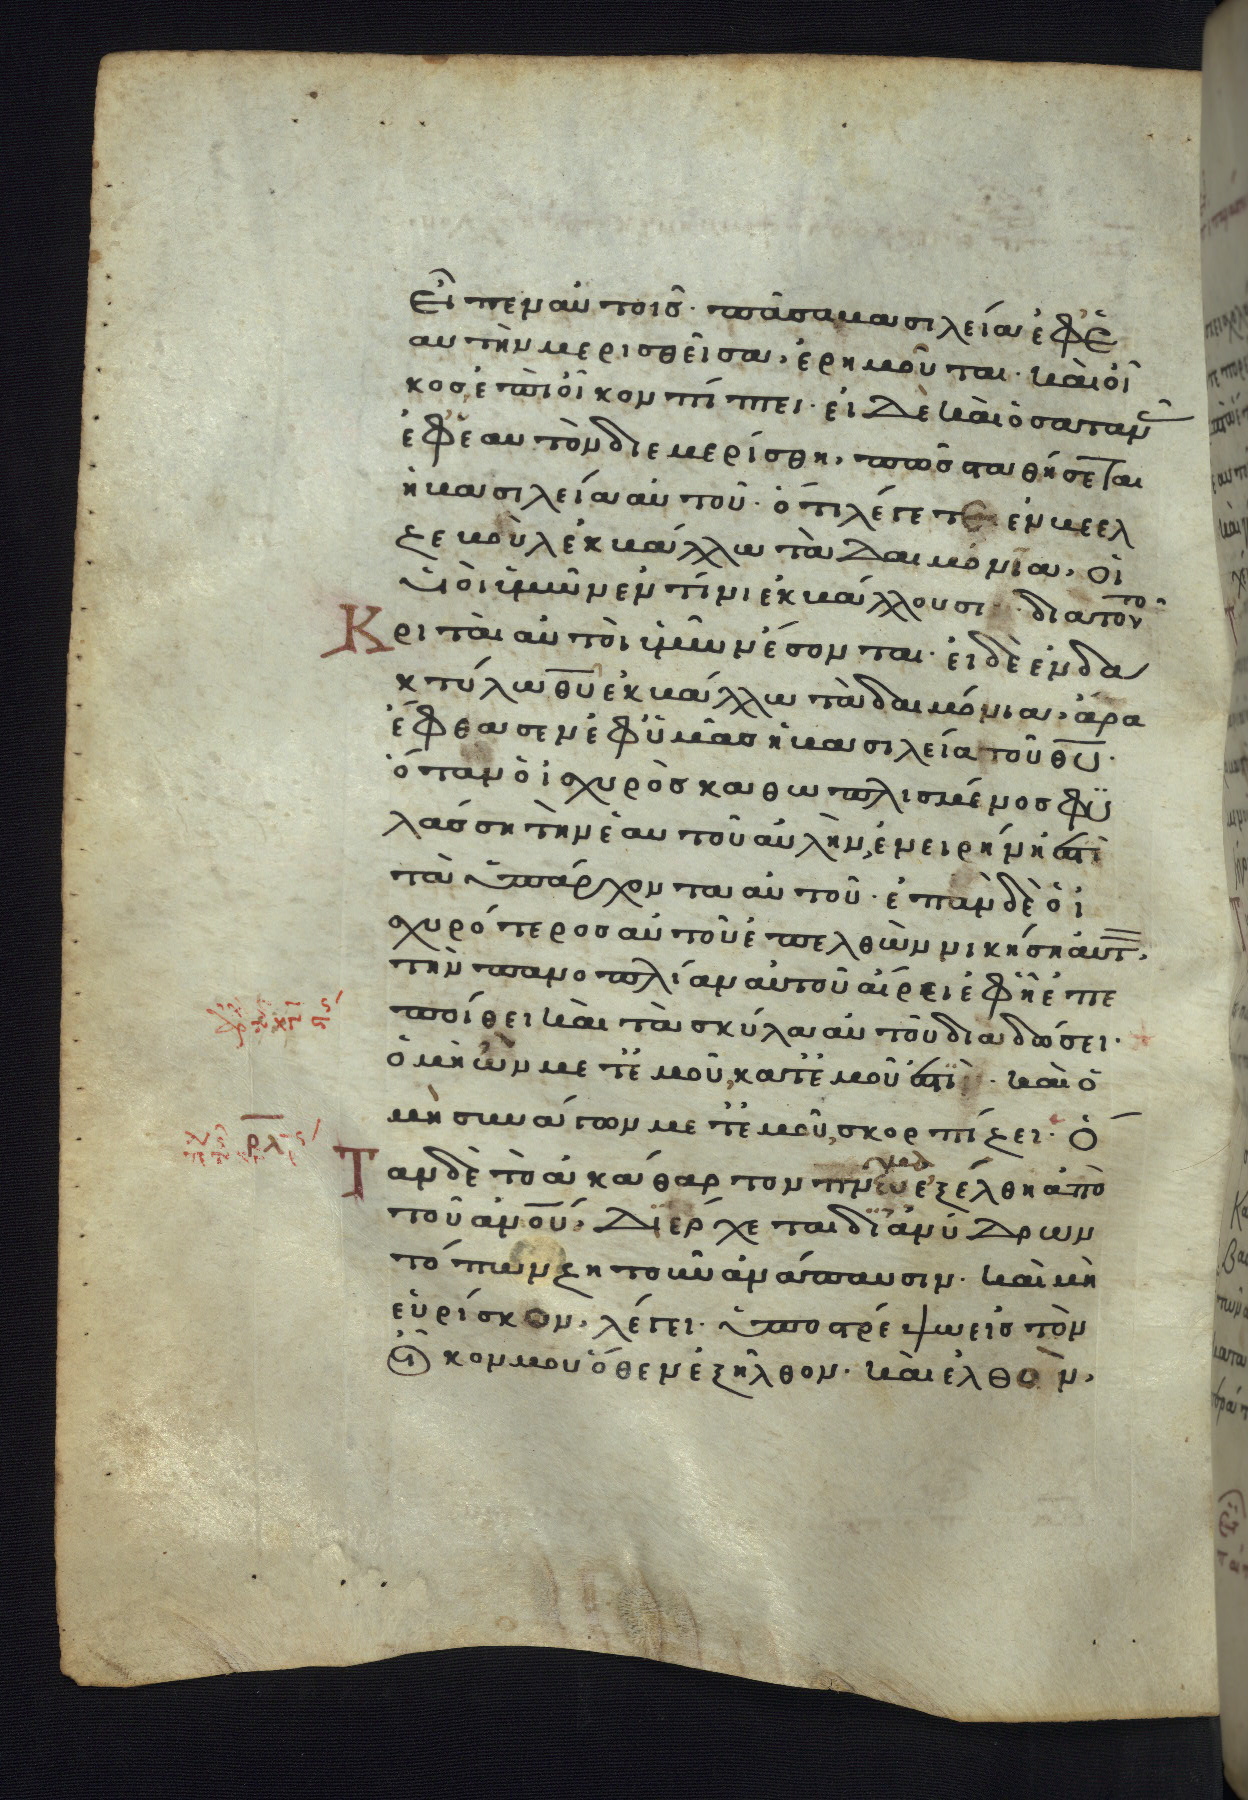 εἶπεν αὐτοῖς· πᾶσα βασιλεία ἐφ' ἑ
αυτὴν μερισθεῖσα, ἐρημοῦται· καὶ οἶ
κος ἐπὶ οἶκον πίπτει· εἰ δὲ καὶ ὁ σατανᾶ
ἐφ' ἑαυτὸν διεμερίσθη, πῶς σταθήσεται
ἡ βασιλεία αὐτοῦ· ὅτι λέγετε ἐν βεελ
ζεβοὺλ ἐκβάλλω τὰ δαιμόνια, οἱ
υἱοὶ ὑμῶν ἐν τίνι ἐκβάλλουσι· διατοῦτο
Κριταὶ αὐτοὶ ὑμῶν ἔσονται· εἰ δὲ ἐν δα
κτύλω θυ ἐκβάλλω τὰ δαιμόνια, ἄρα
ἔφθασεν ἐφ' ὑμᾶς ἡ βασιλεία τοῦ θυ·
ὅταν ὁ ἰσχυρὸς καθωπλισμένος φυ
λάσση τὴν ἑαυτοῦ αὐλὴν, ἐν εἰρήνη ἐστὶ
τὰ ὑπάρχοντα αὐτοῦ· ἐπὰν δὲ ὁ ἰ
σχυρότερος αὐτοῦ ἐπελθὼν νικήση αὐτ,
τὴν πανοπλίαν αὐτοῦ αἴρει ἐφ' ἧ ἐπε
ποίθει καὶ τὰ σκῦλα αὐτοῦ διαδώσει·
ὁ μὴ ὢν μετ' ἐμοῦ, κατ' ἐμοῦ ἐστὶ· καὶ ὁ
μὴ συνάγων μετ' ἐμοῦ, σκορπίζει· Ὅ
Ταν δὲ τὸ ἀκάθαρτον πνευμα ἐξέλθη ἀπὸ
τοῦ ἀνου, διέρχεται δι' ἀνύδρων
τόπων ζητοῦν ἀνάπαυσιν· καὶ μὴ
εὑρίσκον, λέγει· ὑποστρέψω εἰς τὸν
οἶκον μου ὅθεν ἐξῆλθον· καὶ ἐλθὸν,
ρλ